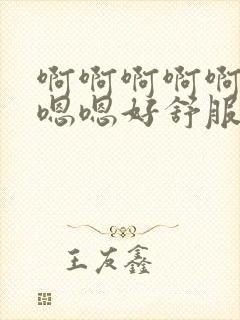 啊啊啊啊啊
嗯嗯好舒服
王友鑫